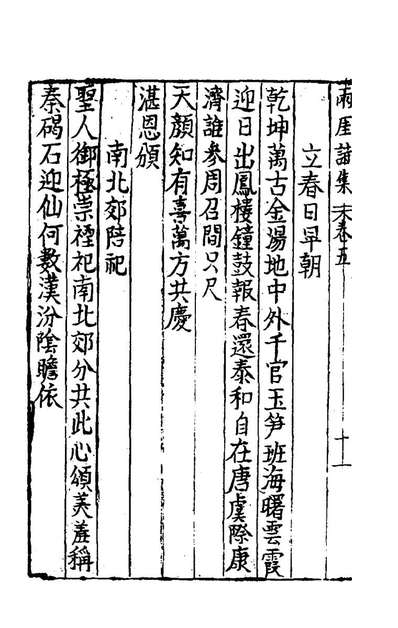 兩厓詩集 卷五 十一
立春日早朝
乾坤萬古金湯地中外千官玉笋班海曙雲霞
迎日出鳳樓鐘鼓報春還泰和自在唐虞際康
濟誰參周召間只尺
天顏知有喜萬方共慶
湛恩頒
南北郊陪祀
聖人御極崇禋祀南北郊分共此心頌美羞稱
秦碣石迎仙何數漢汾陰瞻依